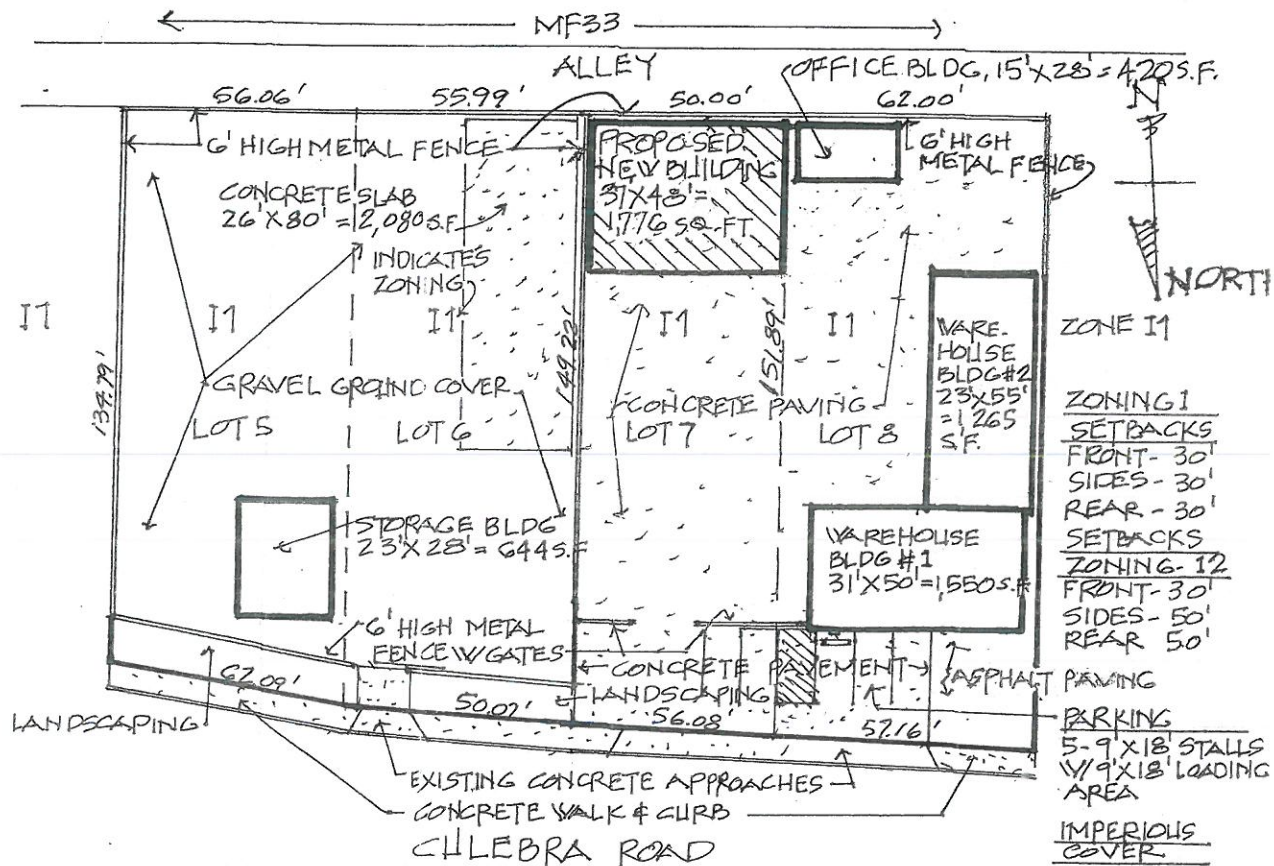 MF33
ALLEY
OFFICE BLDG, 15'X28'=420 S.F.
N
56.06'
55.99'
50.00'
62.00'
6' HIGH METAL FENCE
PROPOSED
NEW BUILDING
37X48'=
1,776 SQ.FT
6' HIGH
METAL FENCE
CONCRETE SLAB
26'X80'=2,080 S.F.
INDICATES
ZONING
NORTH
I1
I1
I1
I1
I1
ZONE I1
WARE-
HOUSE
BLDG#2
23'X55'
=1265
S.F.
149.22'
151.89'
GRAVEL GROUND COVER
CONCRETE PAVING
LOT 5
LOT 6
LOT 7
LOT 8
ZONING 1
SETBACKS
FRONT-30'
SIDES-30'
REAR-30'
SETBACKS
ZONING-12
FRONT-30'
SIDES-50'
REAR 50'
STORAGE BLDG
23'X28'=644 S.F
WAREHOUSE
BLDG #1
31'X50'=1,550 S.F.
6' HIGH METAL
FENCE W/GATES
CONCRETE PAVEMENT
62.09'
50.07'
LANDSCAPING
56.08'
57.16'
ASPHALT PAVING
LANDSCAPING
PARKING
5-9'X18' STALLS
W/9'X18' LOADING
AREA
EXISTING CONCRETE APPROACHES
CONCRETE WALK & CURB
CULEBRA ROAD
IMPERIOUS
COVER